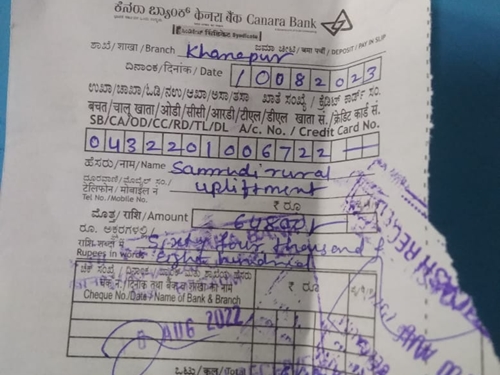 ಕೆನರಾ ಬ್ಯಾಂಕ್ केनरा बैंक Canara Bank
ಸಿಂಡಿಕೇಟ್ सिंडिकेट Syndicate
ಶಾಖೆ/शाखा/Branch Khanapur ಜಮಾ ಚೀಟಿ/जमा पर्ची/DEPOSIT/PAY IN SLIP
ದಿನಾಂಕ/दिनांक/Date 10082023
बचत/चालू खाता/ओडी/सीसी/आरडी/टीएल/डीएल खाता सं./क्रेडिट कार्ड सं.
SB/CA/OD/CC/RD/TL/DL A/c. No. / Credit Card No.
0432201006722
ಹೆಸರು/नाम/Name Samrudi rural
टेलिफोन/मोबाइल नं upliftment
Tel No./Mobile No.
₹ ರೂ
ಮೊತ್ತ/राशि/Amount 64800/-
ರೂ. ಅಕ್ಷರಗಳಲ್ಲಿ
राशि-शब्दों में Sixty four thousand &
Rupees in words Eight hundred
Cheque No./Date/Name of Bank & Branch
₹ ರೂ
AUG 2022
CASH RECEIVED
ಒಟ್ಟು/कुल/